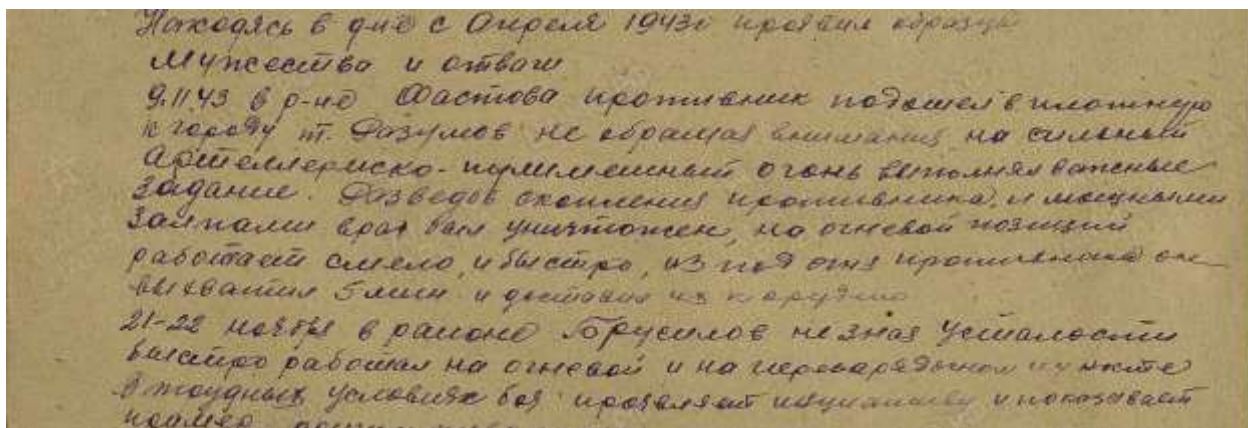 Находясь в д-не с Апреля 1943г проявил образцы
Мужества и отваги
9.11.43 в р-не Фастова противник подошел в плотную
к городу т. Разумов не обращая внимания на сильный
Артеллериско-пулиметный огонь выполнял важные
задание. Разведов скопления противника, и мощными
залпами враг был уничтожен, на огневой позиции
работает смело, и быстро, из под огня противника он
выхватил 5 мин и доставил их к орудию
21-22 ноября в районе Брусилов не зная усталости
быстро работал на огневой и на перезарядочном пункте
В трудных условиях боя проявляет инциативу и показывает
пример